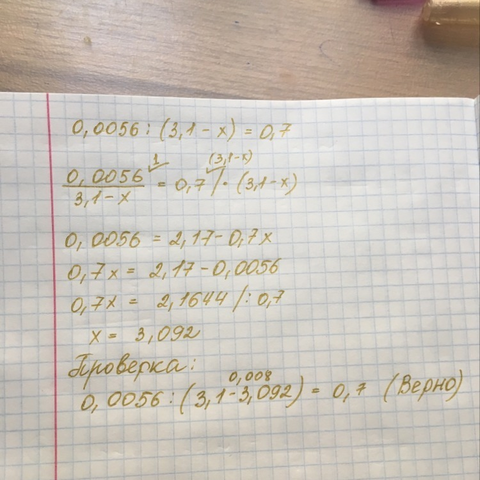 0,0056 : (3,1 - x) = 0,7
1 (3,1-x)
0,0056 / 3,1 - x = 0,7 / · (3,1 - x)
0,0056 = 2,17 - 0,7x
0,7x = 2,17 - 0,0056
0,7x = 2,1644 / : 0,7
x = 3,092
Проверка:
0,008
0,0056 : (3,1 - 3,092) = 0,7 (Верно)